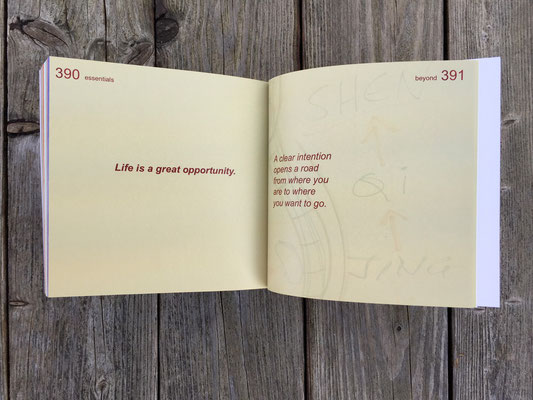 390 essentials
Life is a great opportunity.
beyond 391
A clear intention
opens a road
from where you
are to where
you want to go.
SHEN
QI
JING